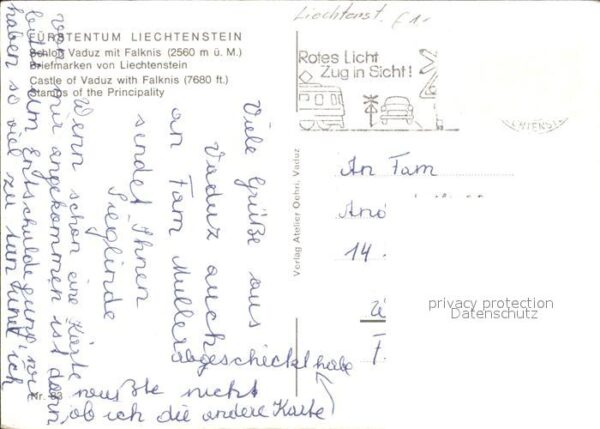 Liechtenst. £1.-
FÜRSTENTUM LIECHTENSTEIN
Schloß Vaduz mit Falknis (2560 m ü. M.)
Briefmarken von Liechtenstein
Castle of Vaduz with Falknis (7680 ft.)
Stamps of the Principality
Rotes Licht
Zug in Sicht!
Viele Grüße aus
Vaduz auch
an Fam Müller
sendet Ihnen
Sieglinde
Wenn schon eine Karte
von mir angekommen ist dann
bitte um Entschuldigung, wir
haben so viel zu tun und ich
wußte nicht
ob ich die andere Karte
abgeschickt habe
Verlag Atelier Oehri, Vaduz
An Fam
And
14
privacy protection
Datenschutz
Nr. 83